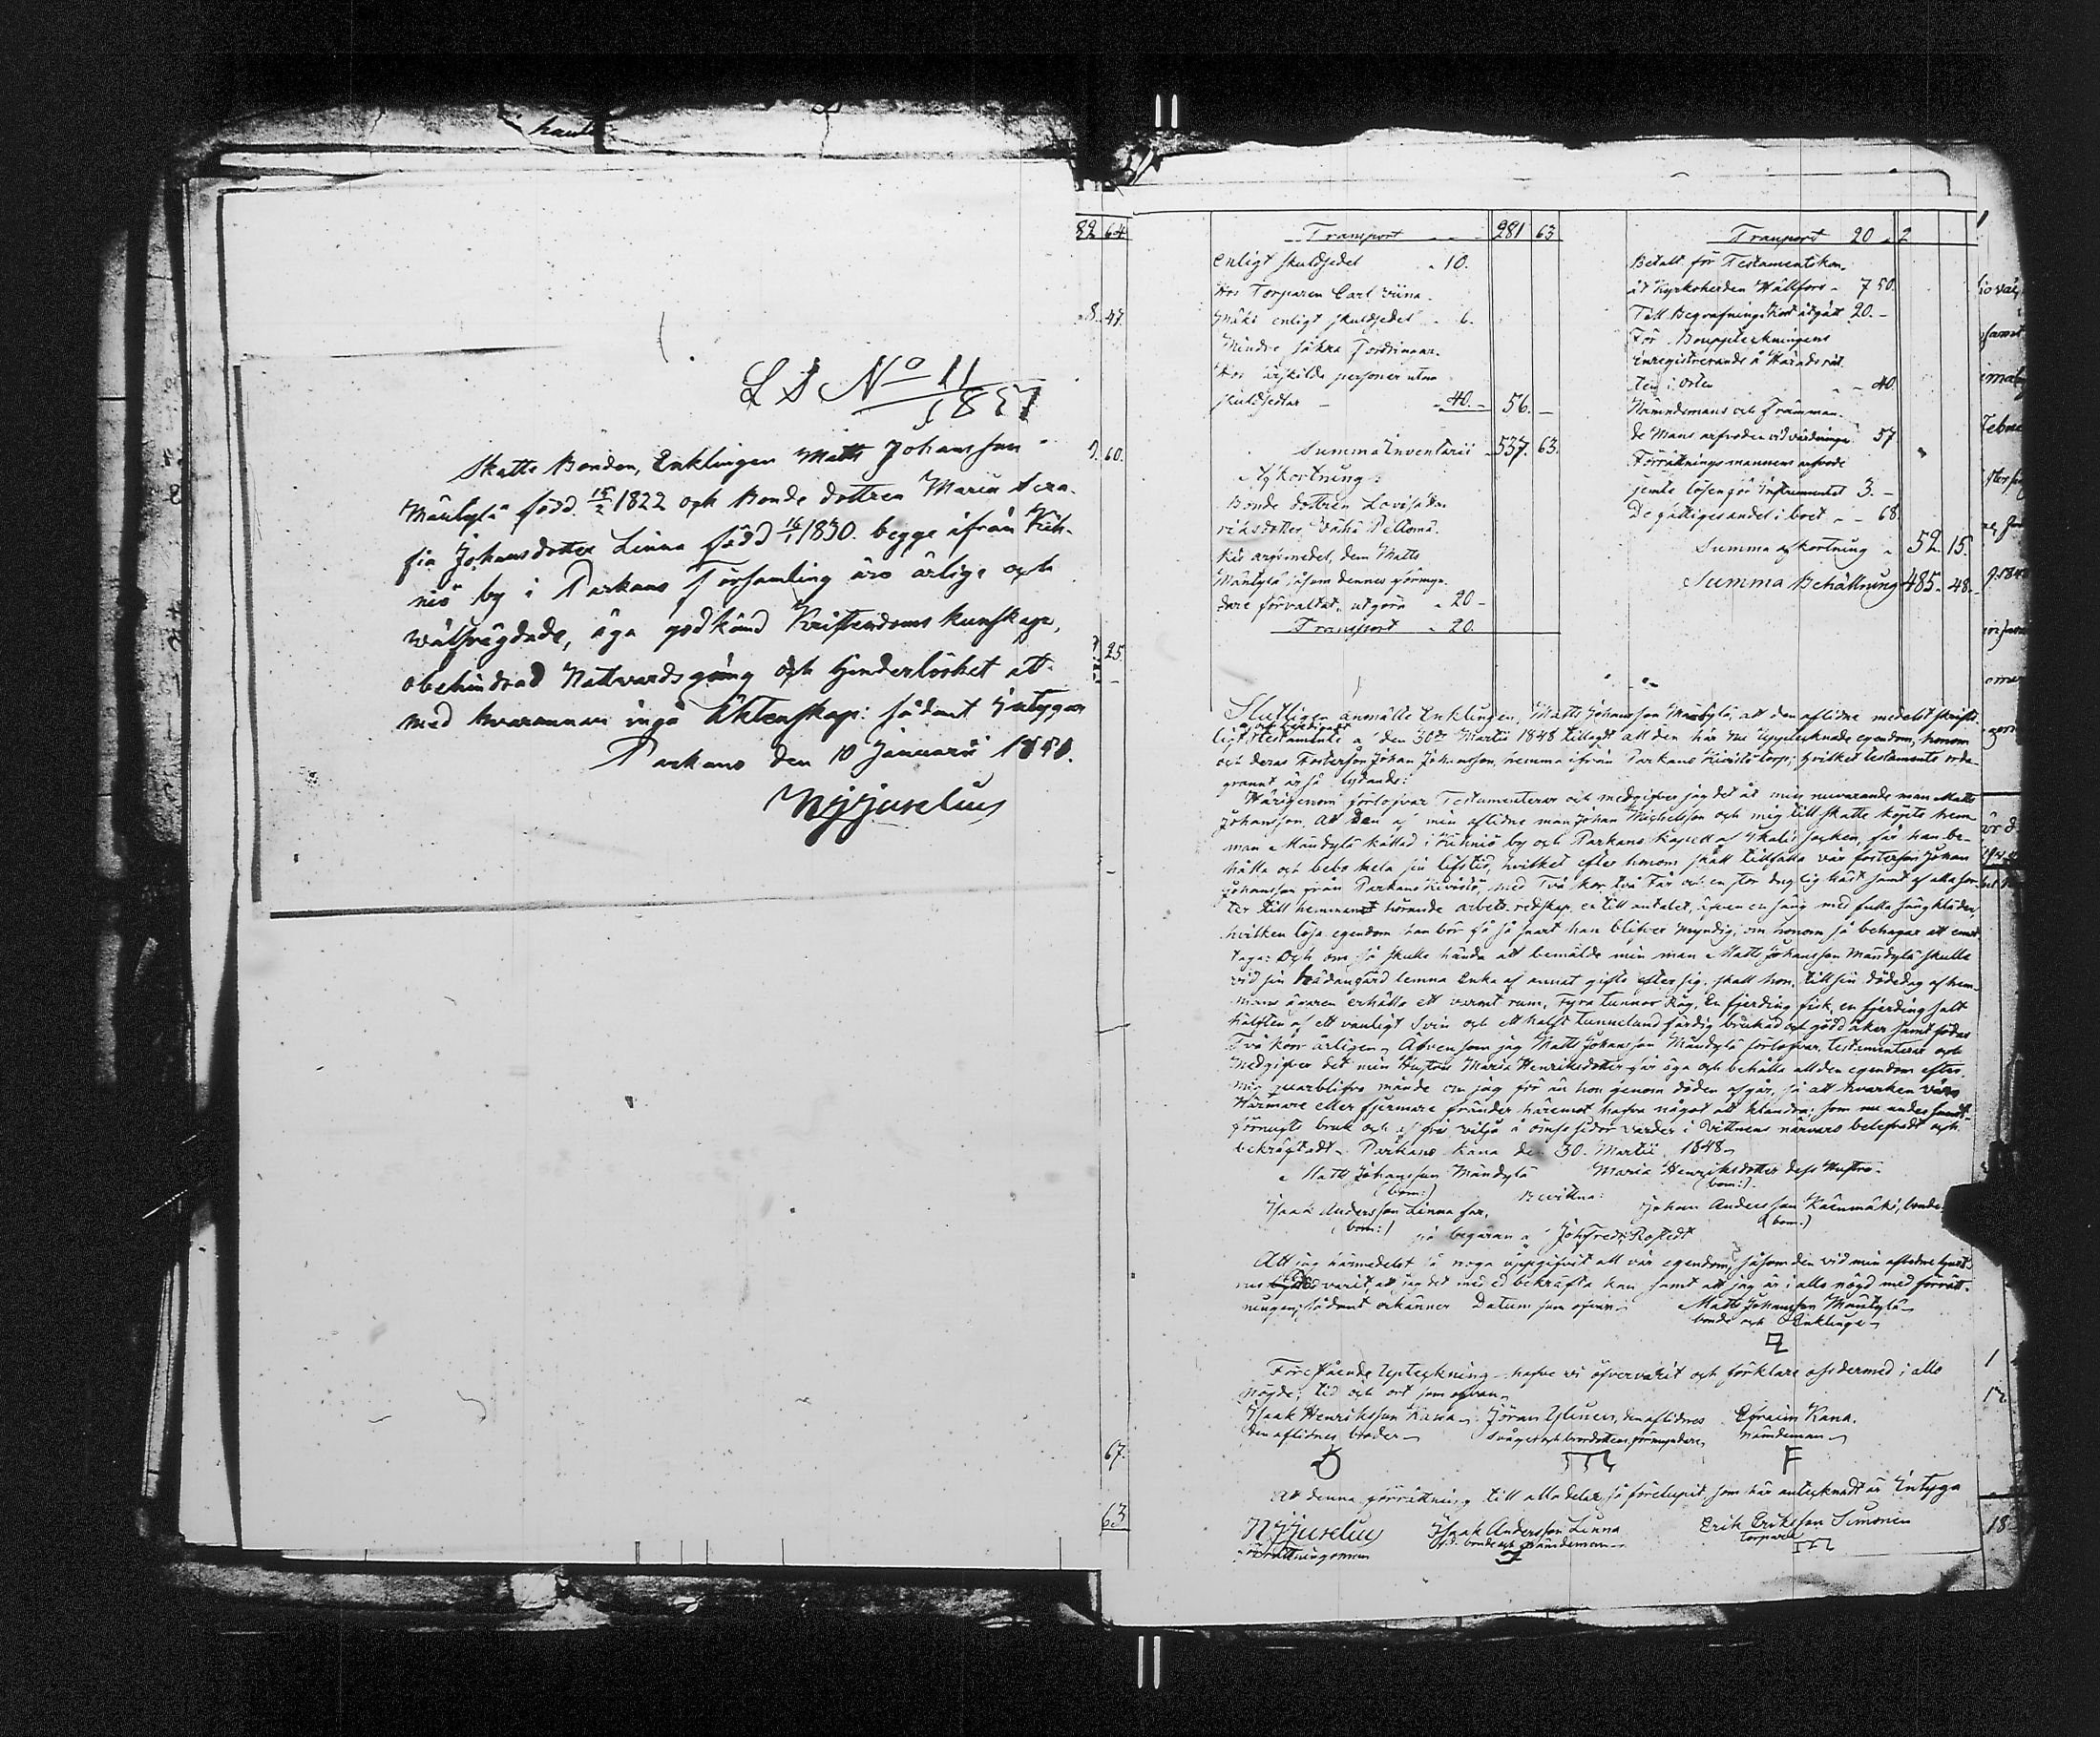 L S No 11
1851
Skatte Bonden, Enklingen Matts Johansson
Mäntylä född 15/2 1822 och Bonde dottren Maria Sera-
fia Johansdotter Linna född 16/1 1830. begge ifrån Kih-
niö by i Parkano Församling äro ärlige och
wälfrägdade, äga godkänd Kristendoms kunskap,
obehindrad Nattvardsgång och hinderlöshet att
med hvarannan ingå Äktenskap: sådant Intygar
Parkano den 10 Januarii 1851.
82 64
8. 47.
60.
25.
67.
63
Transport 281 63
Enligt skuldsedel 10.
Hos Torparen Carl Viina-
mäki enligt skuldsedel 6.
Mindre säkra Fordringar.
Hos särskilda personer utan
skuldsedlar 40. 56. –
Summa Inventarii 537. 63.
Afkortning:
Bonde dottren Lovisa Hen-
riksdotter
arfsmedel, dem Matts
Mäntylä såsom dennes förmyn-
dare förvaltat, utgöra 20 –
Transport 20.
Transport 20 2
Betalt för Testamentskon.
åt Kyrkoherden Hällfors 7 50.
Till Begrafnings Kost åtgått 20. –
För Bouppteckningens
inregistrerande å Härads rät
ten i orten 40.
Nämndemans och Främman-
de Mans arfvoden vid värderingen 57
Förrättningsmannens arfvode
jemte lösen för Instrumentet 3. –
De fattigas andel i boet 68.
Summa afkortning 52. 15.
Summa Behållning 485. 48.
Slutligen anmälte Enklingen, Matts Johansson Mäntylä, att den aflidne medelst skrift-
ligt Testamente af den 30de Martii 1848 tillagt all den här nu Upptecknade egendom, honom
och deras Fosterson Johan Johansson, hemma ifrån Parkano Kivistö torp; hvilket testamente orda-
grannt är så lydande:
Härigenom förlofvar Testamenterar och medgifver jag det åt min nuvarande man Matts
Johansson, att den af min aflidne man Johan Michelsson och mig till skatte köpte hem-
man Mändylä kallad i Kihniö by och Parkano Kapell af Ikalis socken, får han be-
hålla och bebo hela sin lifstid, hvilket efter honom skall tillfalla vår fosterson Johan
Johansson från Parkano Kivistö, med Två kor två Får och en stor duglig häst samt af alla sor-
ter till hemmanet hörande arbets redskap en till antalet, äfven en säng med fulla sängkläder,
hvilken lösa egendom han bör få så snart han blifver myndig, om honom så behagar att emot-
taga: Och om så skulle hända att bemälde min man Matts Johansson Mändylä skulle
vid sin hädangång lemna Enka af annat gifte efter sig, skall hon, till sin dödedag af hem-
mans ägaren erhålla ett varmt rum, Fyra tunnor Råg, En fjerding fisk, en fjerding salt
hälften af ett vanligt Svin och ett halft tunneland färdig brukad och gödd åker samt födas
Två kor årligen. Äfvensom jag Matts Johansson Mändylä förlofvar, testamenterar och
Medgifver det min Hustru Maria Henriksdotter får äga och behålla all den egendom efter
mig quarblifva månde om jag för än hon genom döden afgår, så att hvarken våra
Närmare eller fjermare fränder häremot hafva något att klandra; som nu under sundt
förnufts bruk och af fri vilja å ömse sidor varder i Vittnens närvaro belefvadt och
bekräftadt. Parkano Kana den 30. Martii 1848
Matts Johansson Mändylä Maria Henriksdotter dess Hustru.
(bom:) (bom:)
Bevittna:
Isaak Andersson Linna far, Johan Andersson bonde.
(bom:) (bom:)
på begäran af Joh: Fredr: Rostedt
Att jag härmedelst så noga uppgifvit all vår egendom, såsom den vid min aflidne hustrus
varit, att jag det med ed bekräfta kan samt att jag är i allo nögd med förrätt-
ningen; sådant erkänner Datum som ofvan. Matts Johansson Mäntylä
bonde och Enklinge
Förestående Upteckning hafve vi öfvervarit och förklare oss dermed i allo
nögde; tid och ort som ofvan.
Isaak Henriksson Kana Jöran Efraim Kana.
den aflidnes broder Nämndeman
F
Att denna förrättning till alla delar så förelupit som här antecknadt är Intyga
Isaak Andersson Linna Erik Eriksson Simonen
Förrättningsman bonde och Nämndeman Torpare